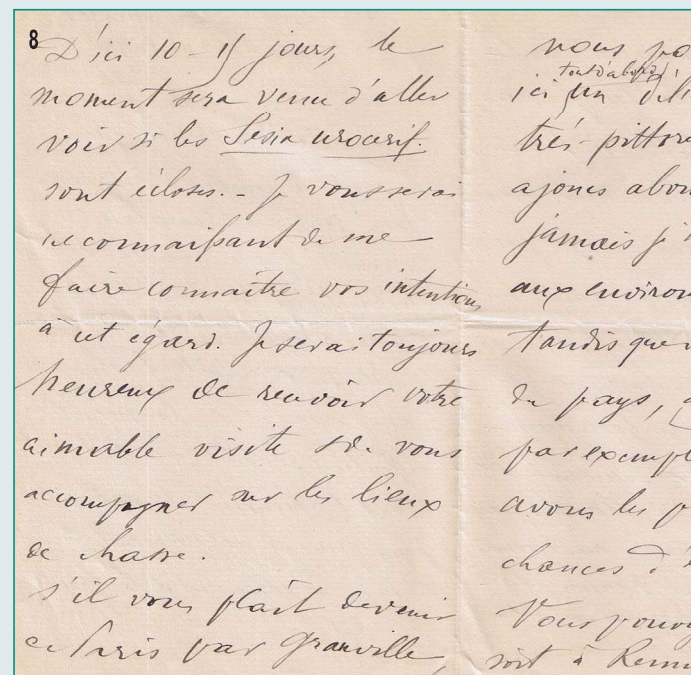 8
D'ici 10-15 jours, le
moment sera venu d'aller
voir si les Sesia urocerif.
sont écloses. - Je vous serai
reconnaissant de me
faire connaître vos intentions
à cet égard. Je serai toujours
heureux de recevoir votre
aimable visite et de vous
accompagner sur les lieux
de chasse.
S'il vous plaît de venir
de Paris par Granville,
nous
tout d'abord
ici un
très-pittor
ajoncs abon
jamais j'
aux environ
tandis que
du pays,
par exempl
avons les p
chances d'
Vous pouv
soit à Renn